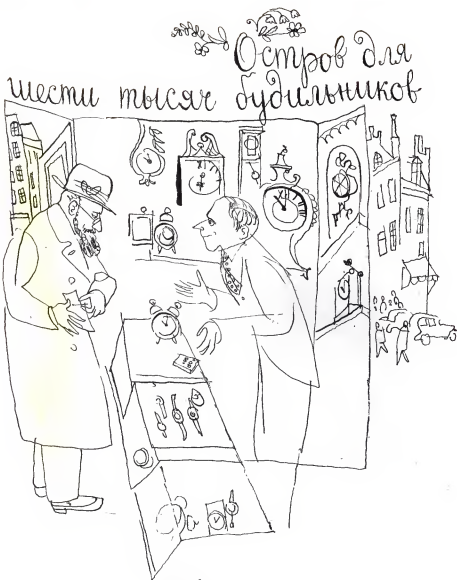 Остров для
шести тысяч будильников